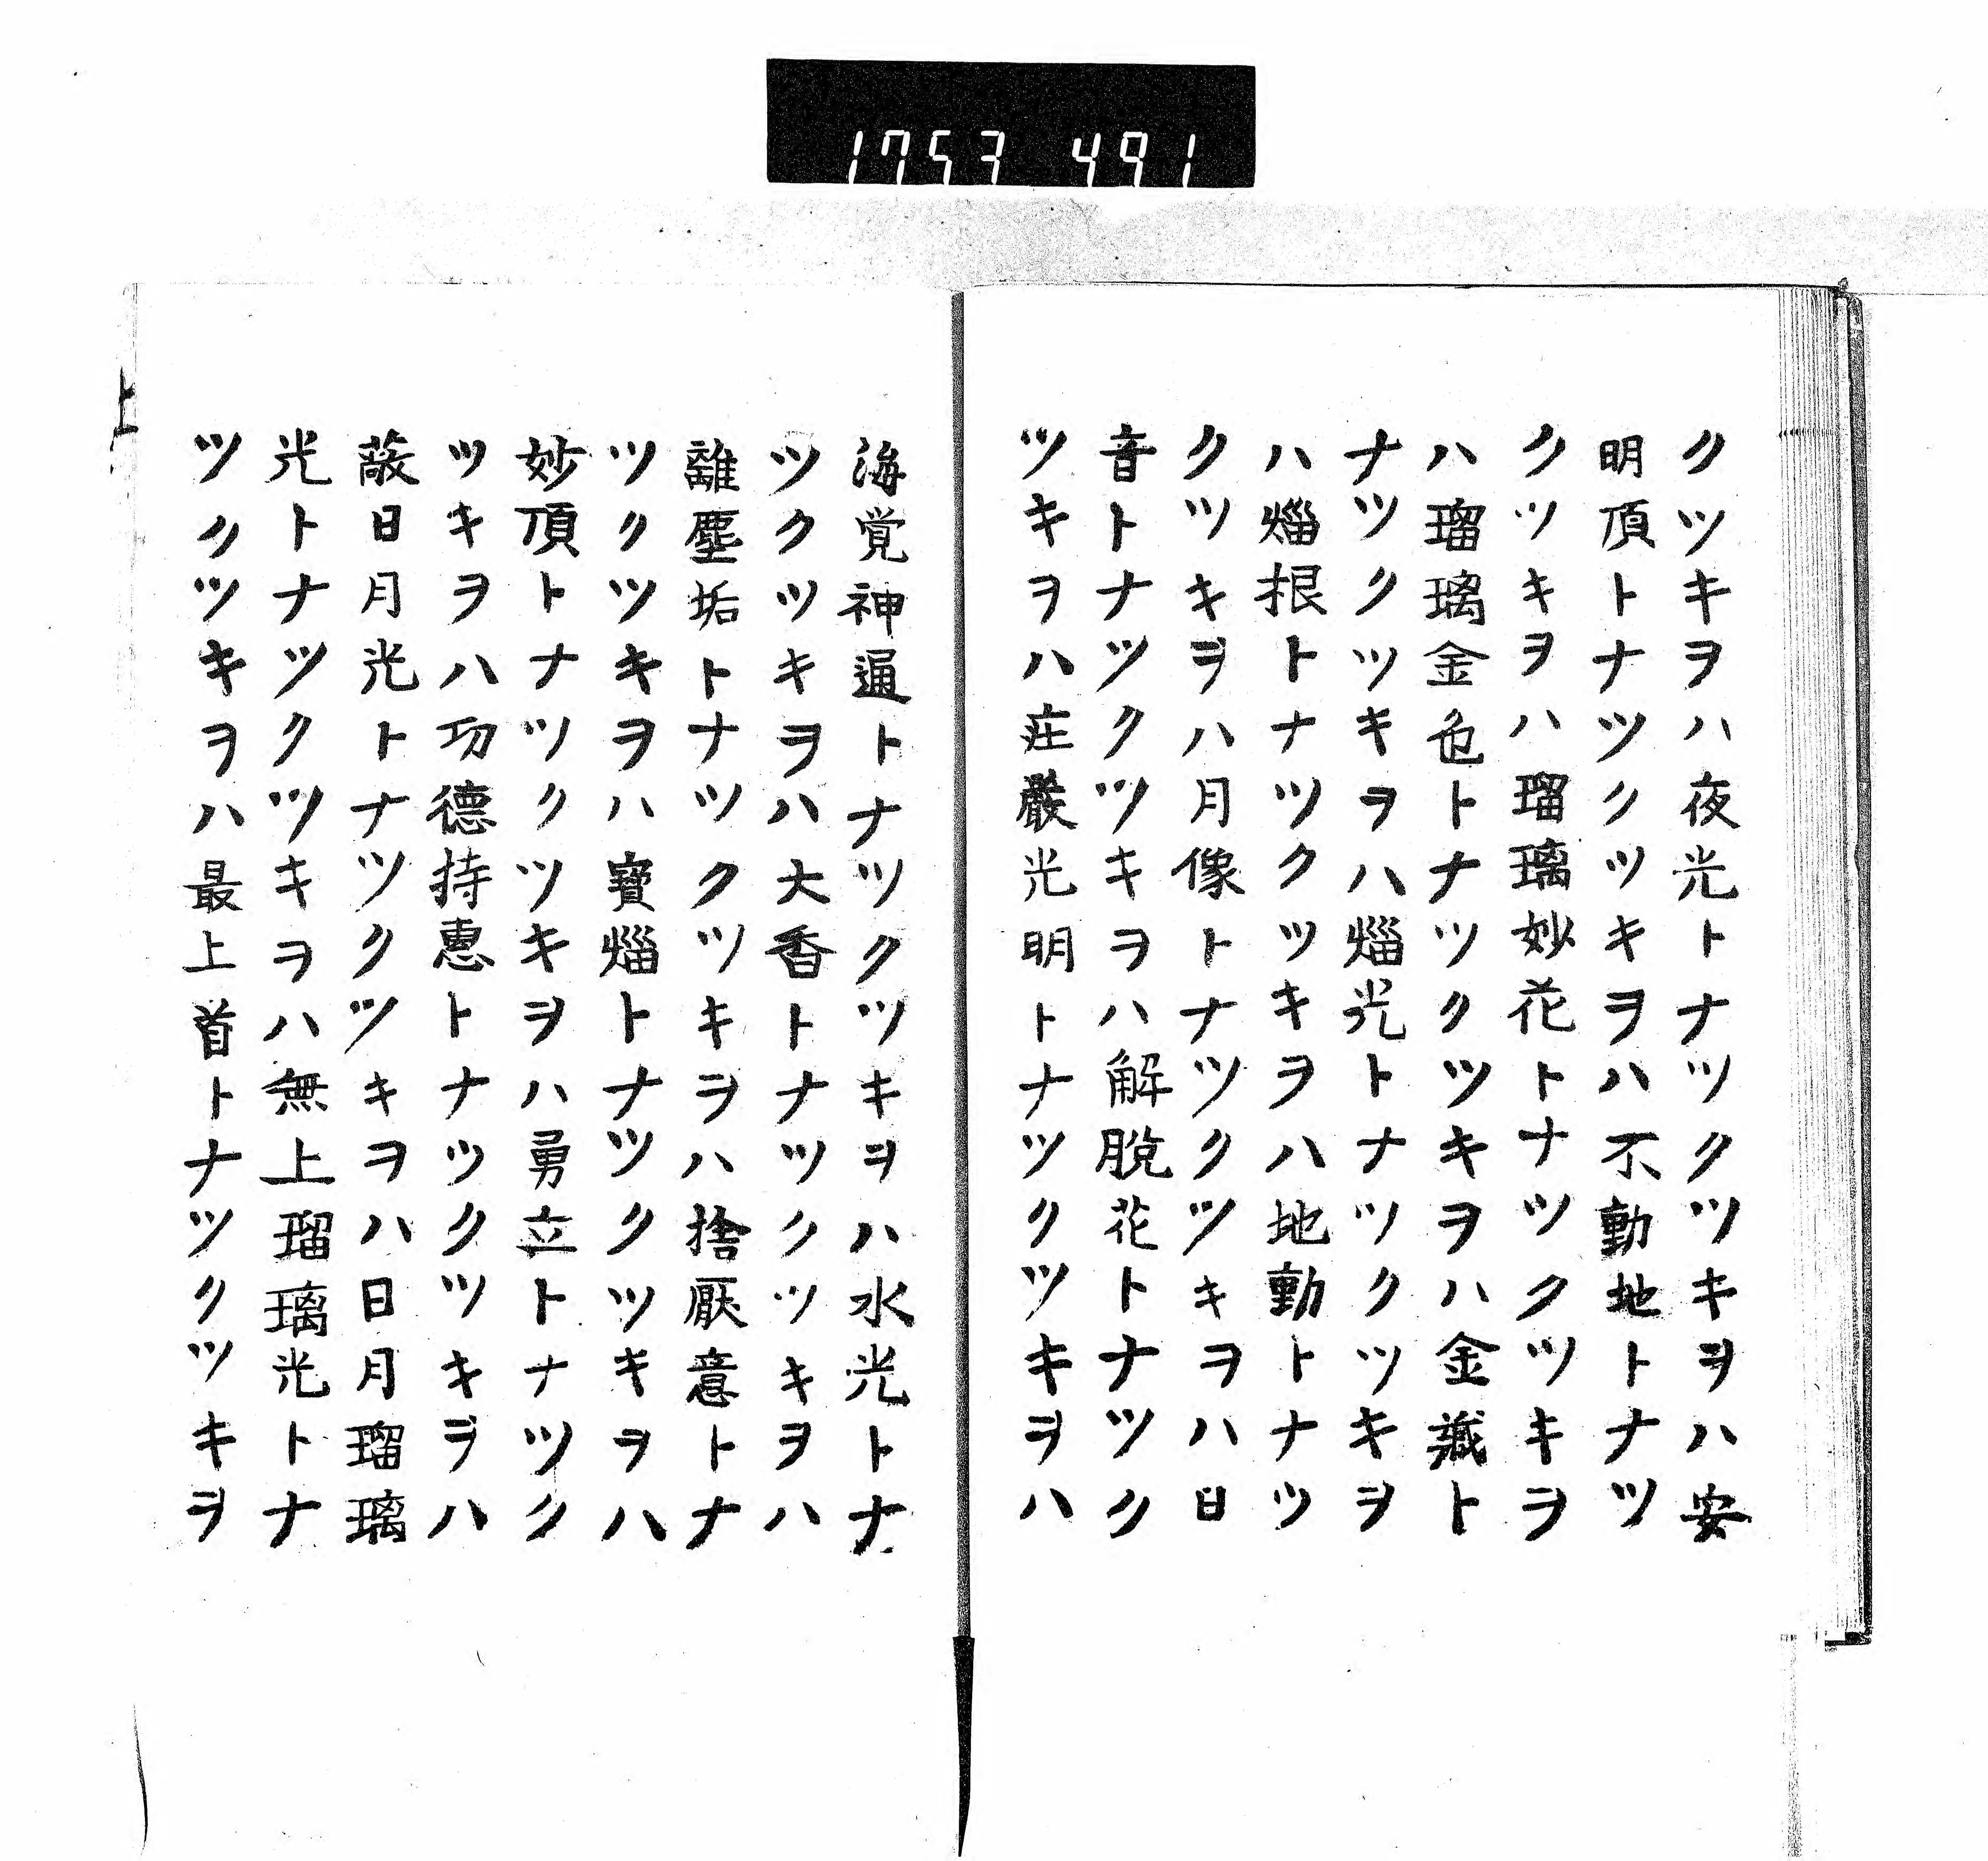 1753 491
クツキヲハ夜光トナツクツキヲハ安
明頂トナツクツキヲハ不動地トナツ
クツキヲハ瑠璃妙花トナツクツキヲ
ハ瑠璃金色トナツクツキヲハ金藏ト
ナツクツキヲハ㷔光トナツクツキヲ
ハ㷔根トナツクツキヲハ地動トナツ
クツキヲハ月像トナツクツキヲハ日
音トナツクツキヲハ解脱花トナツク
ツキヲハ庄嚴光明トナツクツキヲハ
海覚神通トナツクツキヲハ水光トナ
ツクツキヲハ大香トナツクツキヲハ
離塵垢トナツクツキヲハ捨厭意トナ
ツクツキヲハ寳㷔トナツクツキヲハ
妙頂トナツクツキヲハ勇立トナツク
ツキヲハ功德持惠トナツクツキヲハ
蔽日月光トナツクツキヲハ日月瑠璃
光トナツクツキヲハ無上瑠璃光トナ
ツクツキヲハ最上首トナツクツキヲ
上